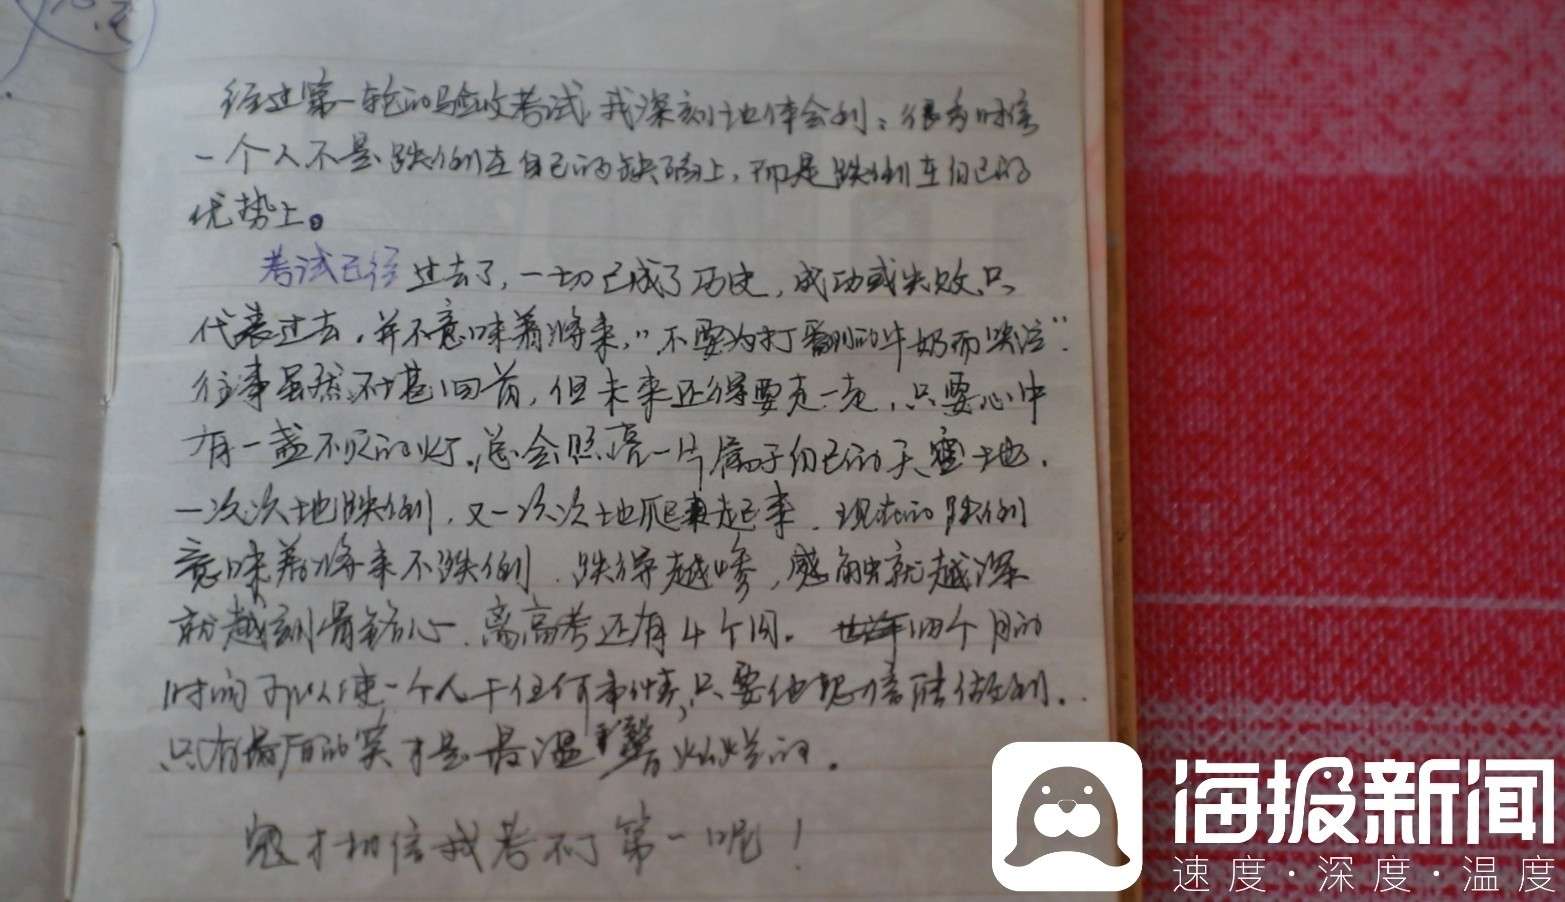 经过第一轮的验收考试,我深刻地体会到:很多时候
一个人不是跌倒在自己的缺陷上,而是跌倒在自己的
优势上。
考试已经过去了,一切已成了历史,成功或失败只
代表过去,并不意味着将来,"不要为打翻的牛奶而哭泣".
往事虽然不堪回首,但未来还得要走一走,只要心中
有一盏不灭的灯,总会照亮一片属于自己的天空土地.
一次次地跌倒,又一次次地爬起来.现在的跌倒
意味着将来不跌倒.跌得越惨,感触就越深
就越刻骨铭心.离高考还有4个月。四个月的
时间可以使一个人干任何事情,只要他坚信能做到.
只有最后的笑才是最温馨灿烂的.
鬼才相信我考不了第一呢!
海报新闻
速度·深度·温度